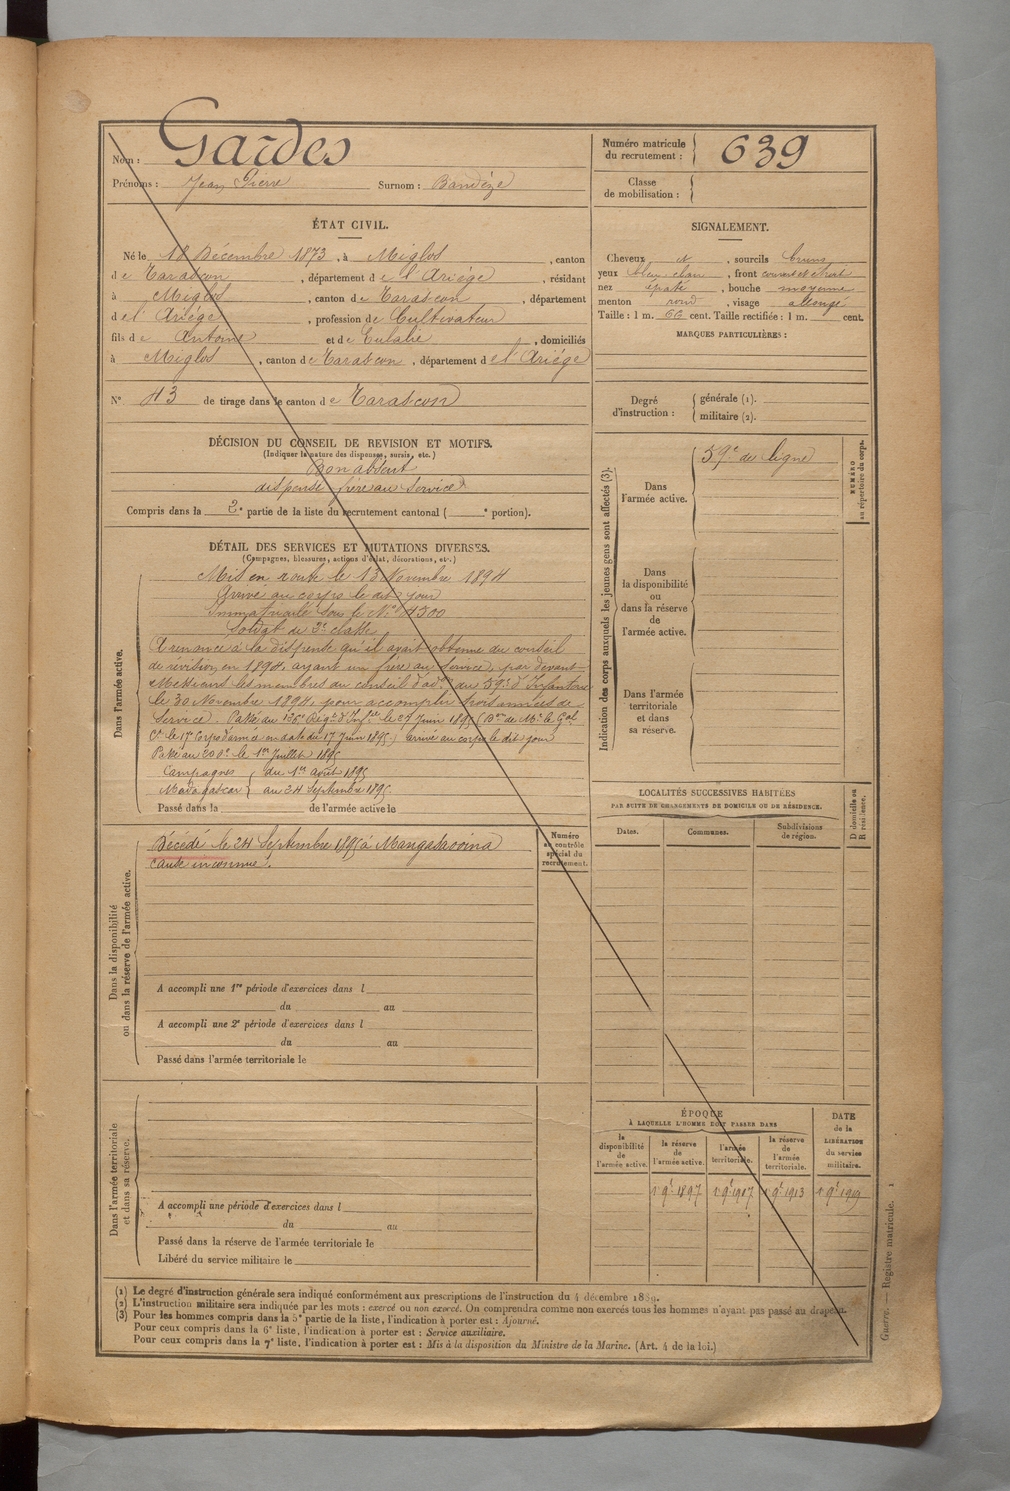 Nom : Gardes
Prénoms : Jean Pierre Surnom : Bandèze
ÉTAT CIVIL.
Né le 18 Décembre 1873, à Miglos, canton
de Tarascon, département de l'Ariége, résidant
à Miglos, canton de Tarascon, département
de l'Ariége, profession de Cultivateur
fils de Antoine et de Eulalie, domiciliés
à Miglos, canton de Tarascon, département de l'Ariége
N° 43 de tirage dans le canton de Tarascon
DÉCISION DU CONSEIL DE REVISION ET MOTIFS.
(Indiquer la nature des dispenses, sursis, etc.)
Bon absent
dispensé frère au service
Compris dans la 2e partie de la liste du recrutement cantonal ( e portion).
DÉTAIL DES SERVICES ET MUTATIONS DIVERSES.
(Campagnes, blessures, actions d'éclat, décorations, etc.)
Dans l'armée active.
Mis en route le 13 Novembre 1894
Arrivé au corps le dit jour
Immatriculé sous le N° 4300
Soldat de 2e classe
A renoncé à la dispense qu'il avait obtenue du conseil
de révision en 1894, ayant un frère au service, par devant
Messieurs les membres du conseil d'adon du 59e d'Infanterie
le 30 Novembre 1894, pour accomplir trois années de
service. Passé au 136e Régt d'Infie le 27 Juin 1895 (Don de Mr le Gal
Ct le 17e Corps d'armée en date du 17 Juin 1895) arrivé au corps le dit jour
Passé au 200e le 1er Juillet 1895
Campagnes { du 1er Août 1895
Madagascar { au 24 Septembre 1895
Passé dans la de l'armée active le
Dans la disponibilité
ou dans la réserve de l'armée active.
Décédé le 24 Septembre 1895 à Mangasaovina
cause inconnue.
Numéro
au contrôle
spécial du
recrutement.
A accompli une 1re période d'exercices dans l
du au
A accompli une 2e période d'exercices dans l
du au
Passé dans l'armée territoriale le
Dans l'armée territoriale
et dans sa réserve.
A accompli une période d'exercices dans l
du au
Passé dans la réserve de l'armée territoriale le
Libéré du service militaire le
Numéro matricule
du recrutement : 639
Classe
de mobilisation :
SIGNALEMENT.
Cheveux et, sourcils bruns
yeux bleu clair, front couvert et étroit
nez épaté, bouche moyenne
menton rond, visage allongé
Taille : 1 m. 66 cent. Taille rectifiée : 1 m. cent.
MARQUES PARTICULIÈRES :
Degré
d'instruction :
générale (1).
militaire (2).
Indication des corps auxquels les jeunes gens sont affectés (3).
Dans
l'armée active.
59e de ligne
NUMÉRO
au répertoire du corps.
Dans
la disponibilité
ou
dans la réserve
de
l'armée active.
Dans l'armée
territoriale
et dans
sa réserve.
LOCALITÉS SUCCESSIVES HABITÉES
PAR SUITE DE CHANGEMENTS DE DOMICILE OU DE RÉSIDENCE.
Dates. Communes. Subdivisions
de région.
D domicile ou
R résidence.
ÉPOQUE
À LAQUELLE L'HOMME DOIT PASSER DANS
la
disponibilité
de
l'armée active.
la réserve
de
l'armée active.
l'armée
territoriale.
la réserve
de
l'armée
territoriale.
DATE
de la
LIBÉRATION
du service
militaire.
1 9e 1897 1 9e 1907 1 9e 1913 1 9e 1919
(1) Le degré d'instruction générale sera indiqué conformément aux prescriptions de l'instruction du 4 décembre 1889.
(2) L'instruction militaire sera indiquée par les mots : exercé ou non exercé. On comprendra comme non exercés tous les hommes n'ayant pas passé au drapeau.
(3) Pour les hommes compris dans la 5e partie de la liste, l'indication à porter est : Ajourné.
Pour ceux compris dans la 6e liste, l'indication à porter est : Service auxiliaire.
Pour ceux compris dans la 7e liste, l'indication à porter est : Mis à la disposition du Ministre de la Marine. (Art. 4 de la loi.)
Guerre. — Registre matricule. 1